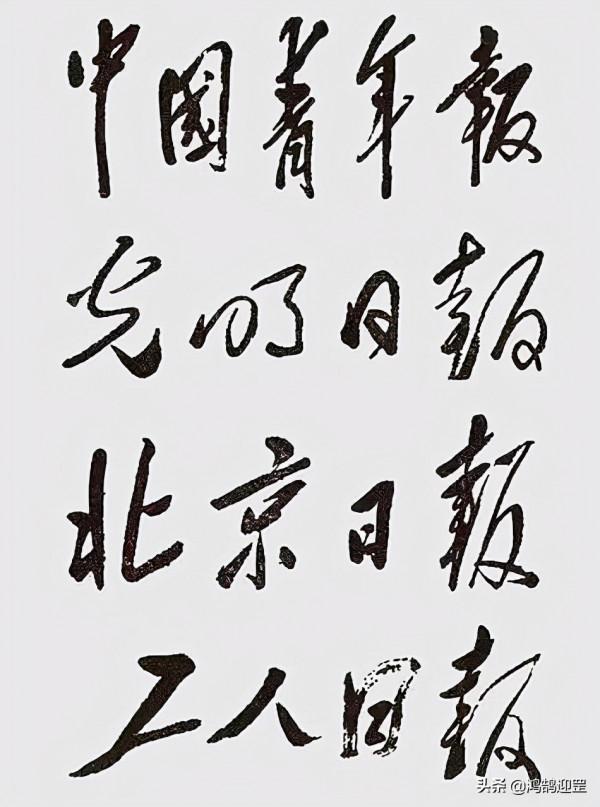 中國青年報
光明日報
北京日報
工人日報
头条 @鸿鹄迎罡